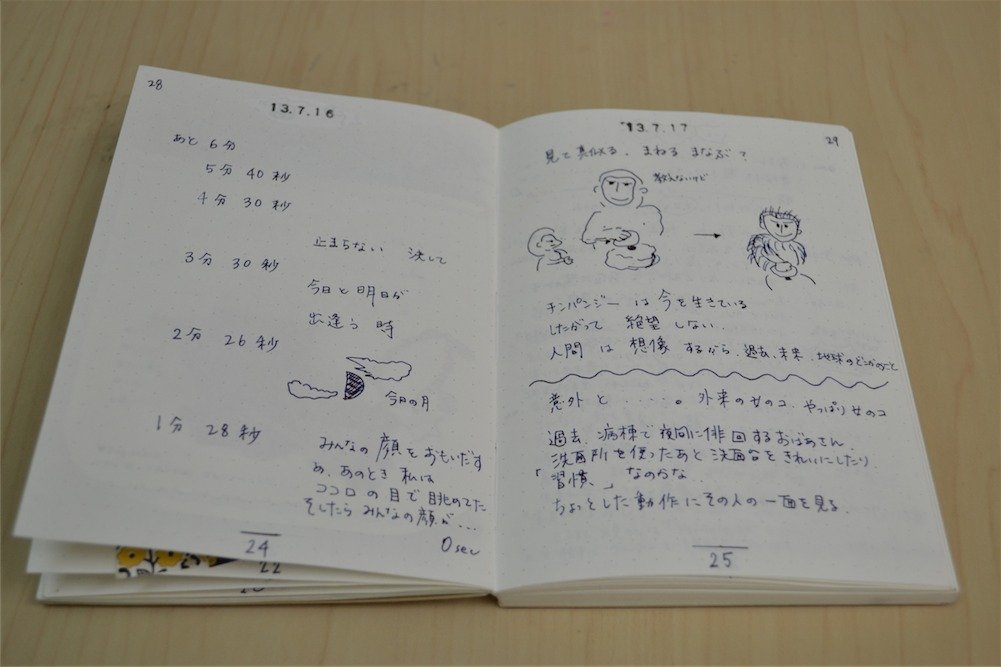 28
13.7.16
あと 6分
5分 40秒
4分 30秒
止まらない 決して
3分 30秒
今日と明日が
出逢う 時
2分 26秒
今日の月
1分 28秒
みんなの顔をおもいだす
め、あのとき 私は
ココロの目で眺めてた
そしたら みんなの顔が...
0 sec
24
22
13.7.17
29
見て真似る、まねる まなぶ?
教えないけど
→
チンパンジー は 今を生きている
したがって 絶望 しない.
人間 は 想像 するから、過去、未来、地球のどこかのこと
意外と ・・・・・。外来の女のコ、やっぱり女のコ
過去、病棟で夜間に俳回するおばあさん
洗面所を使ったあと 洗面台をきれいにしたり.
「習慣、」 なのかな
ちょっとした動作にその人の一面を見る.
25